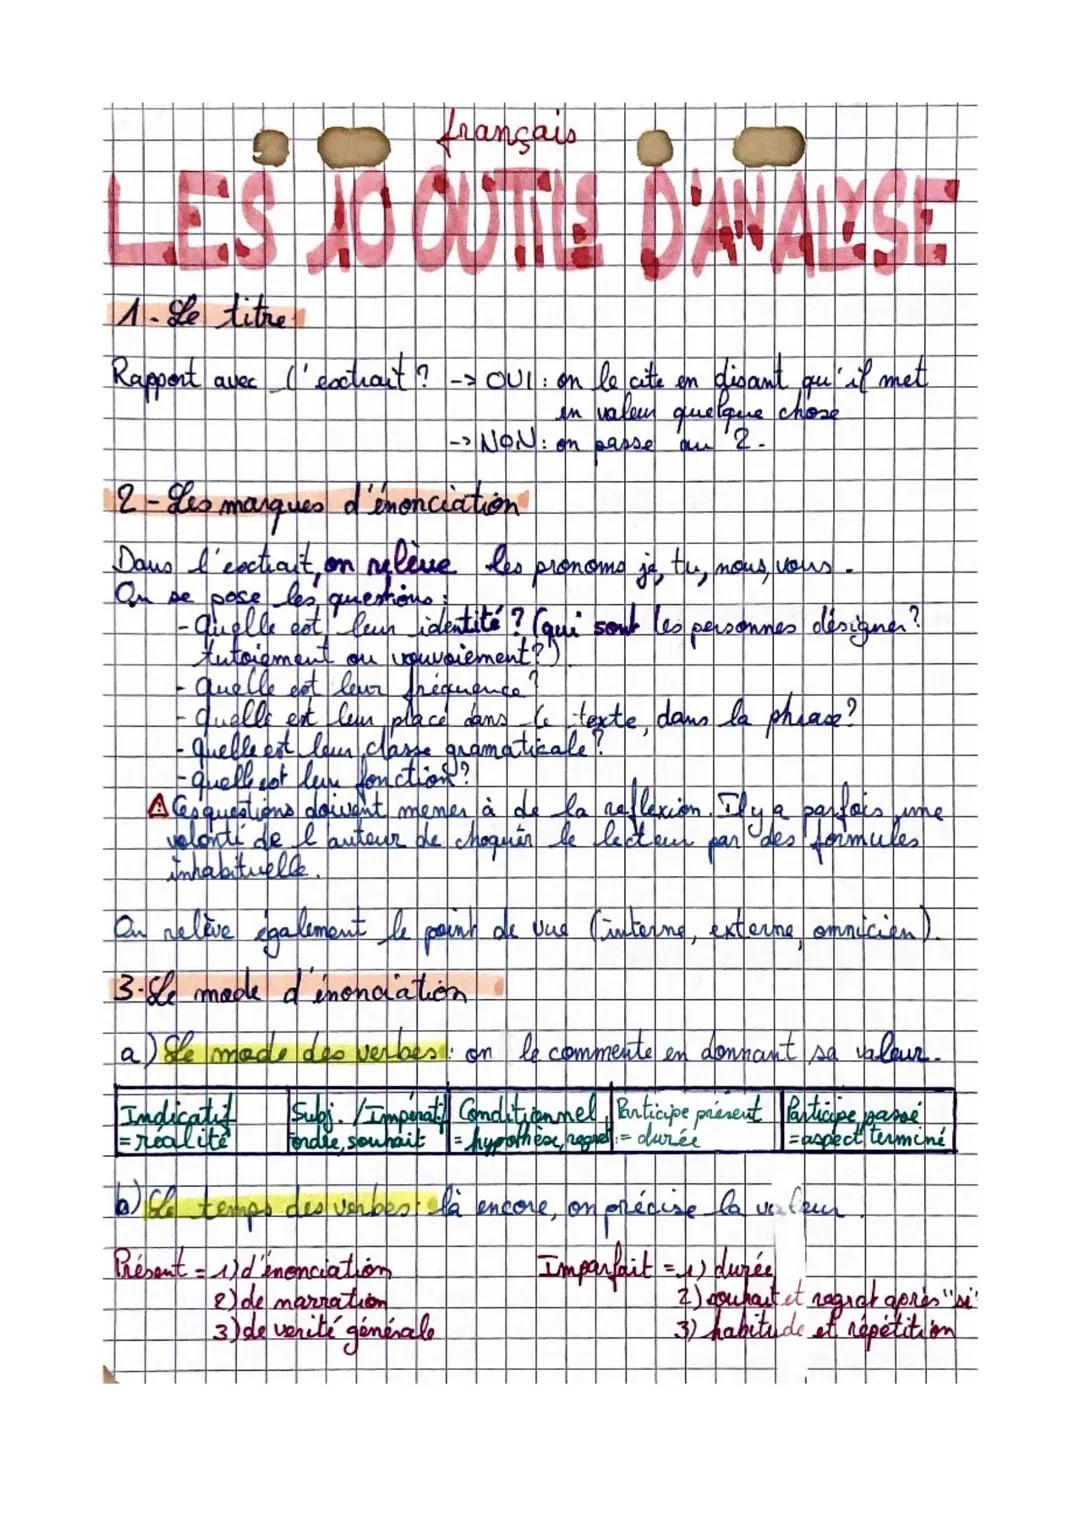 français
LES 10 OUTILS D'ANALYSE
1 - Le titre
Rapport avec l'extrait ? -> OUI : on le cite en disant qu'il met
en valeur quelque chose
-> NON : on passe au 2 -
2 - Les marques d'énonciation
Dans l'extrait, on relève les pronoms je, tu, nous, vous.
On se pose les questions :
- Quelle est leur identité ? (qui sont les personnes désigner ?
tutoiement ou vouvoiement ?)
- Quelle est leur fréquence ?
- Quelle est leur place dans le texte, dans la phrase ?
- Quelle est leur classe gramaticale ?
- quelle est leur fonction ?
⚠ Ces questions doivent mener à de la reflexion. Il y a parfois une
volonté de l'auteur de choquer le lecteur par des formules
inhabituelle.
On relève également le point de vue (interne, externe, omnicien).
3 - Le mode d'énonciation
a) Le mode des verbes : on le commente en donnant sa valeur.
Indicatif Subj. / Impératif Conditionnel Participe présent Participe passé
= réalité ordre, souhait = hypothèse, regret = durée = aspect terminé
b) Le temps des verbes : là encore, on précise la valeur.
Présent = 1) d'énonciation Imparfait = 1) durée
2) de narration 2) souhait et regret après "si"
3) de verité générale 3) habitude et répétition